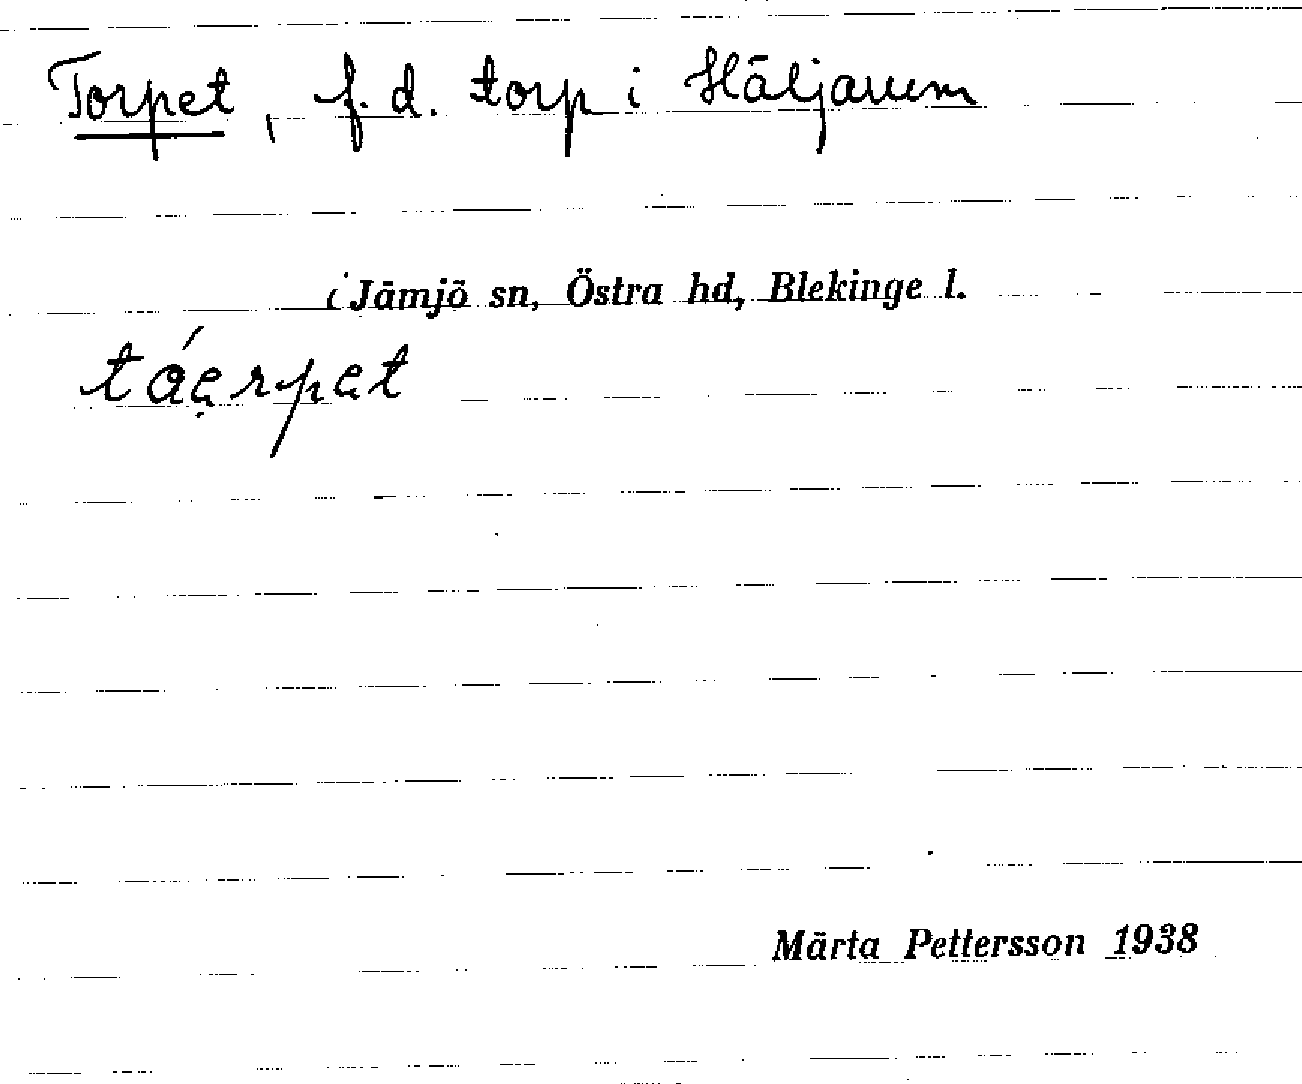 Torpet, f. d. torp i Häljarum
i Jämjö sn, Östra hd, Blekinge l.
táe̥rpet
Märta Pettersson 1938